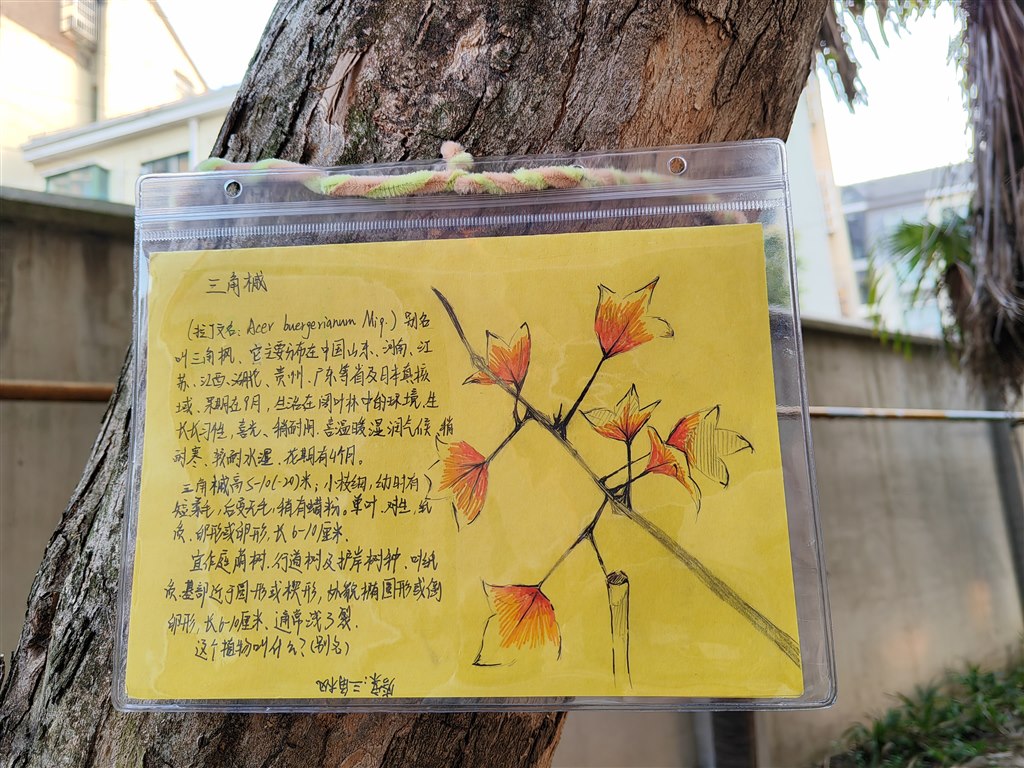 三角槭
(拉丁文名: Acer buergerianum Miq.) 别名
叫三角枫、它主要分布在中国山东、河南、江
苏、江西、湖北、贵州、广东等省及日本
域、果期在9月,生活在阔叶林中的环境,生
长习性,喜光、稍耐阴、喜温暖湿润气候、稍
耐寒、较耐水湿、花期有4个月。
三角槭高5-10(-20)米;小枝细,幼时有
短柔毛,后变无毛,稍有蜡粉。单叶、对生、纸
质、卵形或卵形、长6-10厘米、
宜作庭荫树、行道树及护岸树种、叶纸
质、基部近于圆形或楔形,外貌椭圆形或倒
卵形,长6-10厘米、通常浅3裂、
这个植物叫什么?(别名)
答案:三角枫